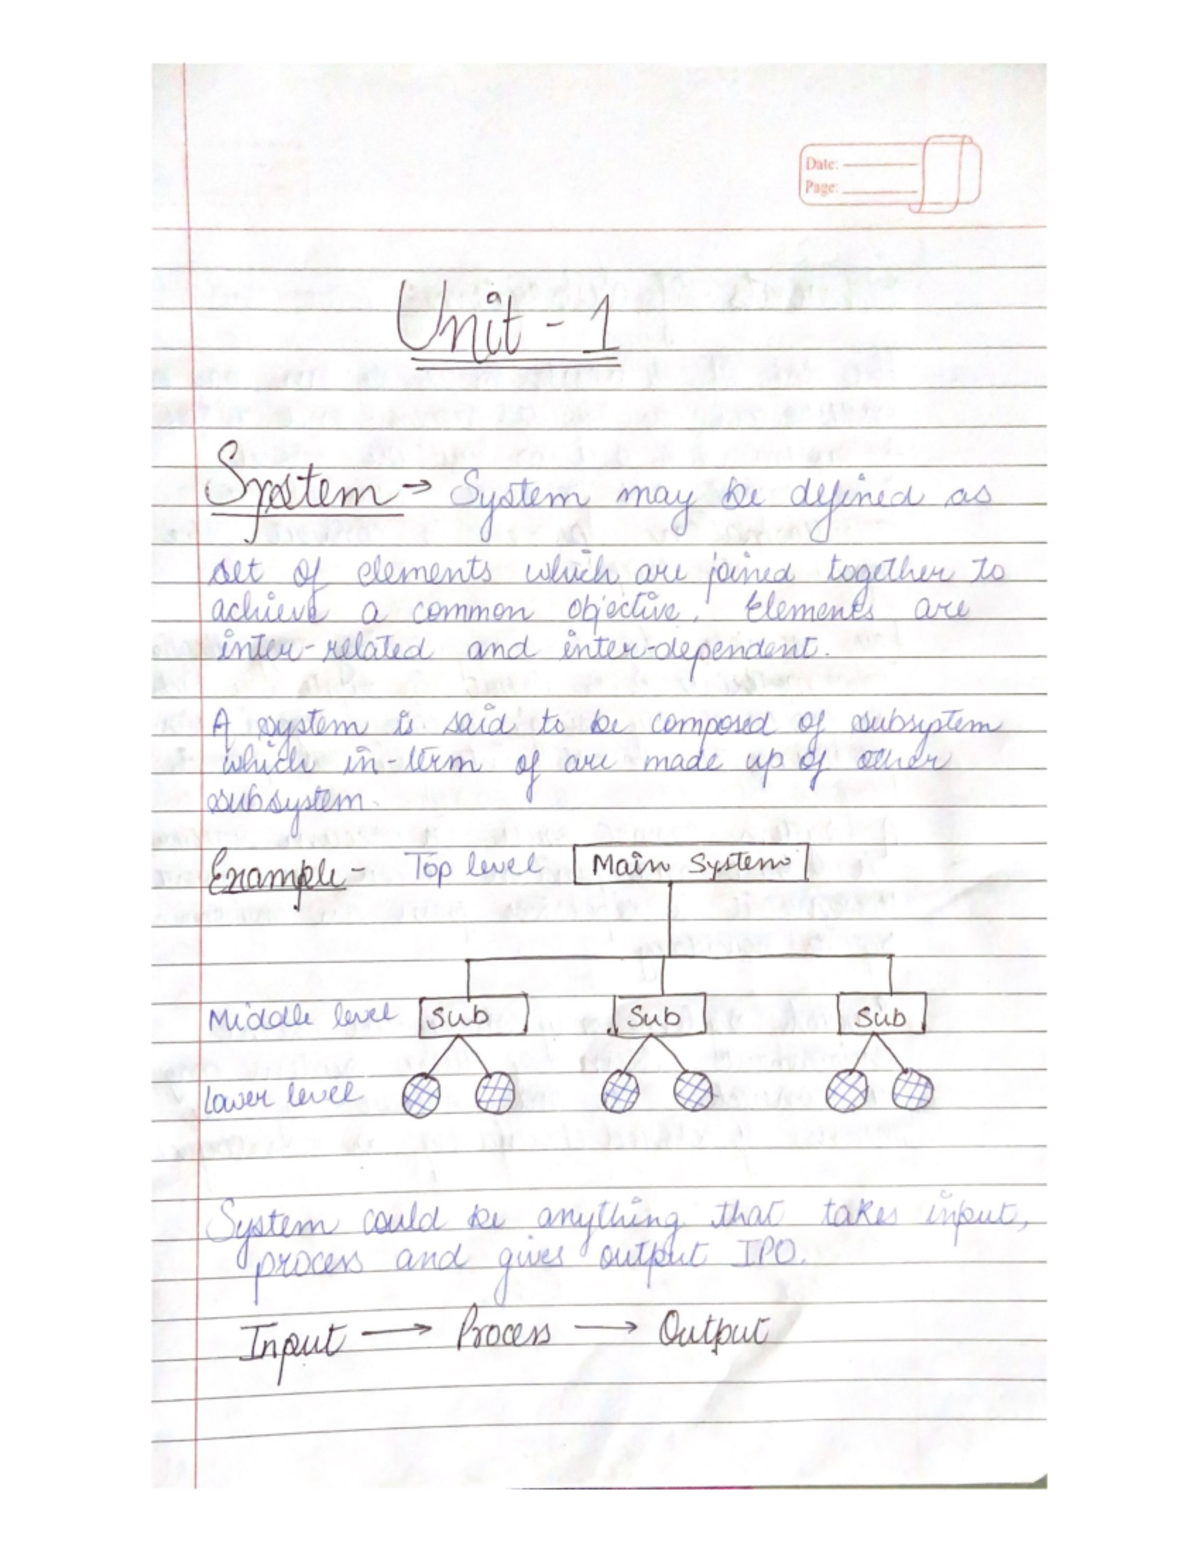 Date:
Page:
Unit - 1
System → System may be defined as
set of elements which are joined together to
achieve a common objective. Elements are
inter-related and inter-dependent.
A system is said to be composed of subsyptem
which in-term of are made up of other
subsystem.
Example - Top level Main System
Middle level Sub Sub Sub
Lower level
System could be anything that takes input,
process and gives output IPO.
Input → Process → Output